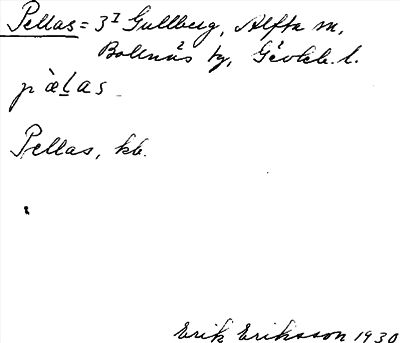 Pellas = 3ᴵ Gullberg, Alfta sn,
Bollnäs tg, Gävleb. l.
pæ̀l̲as
Pellas, kb.
Erik Eriksson 1930